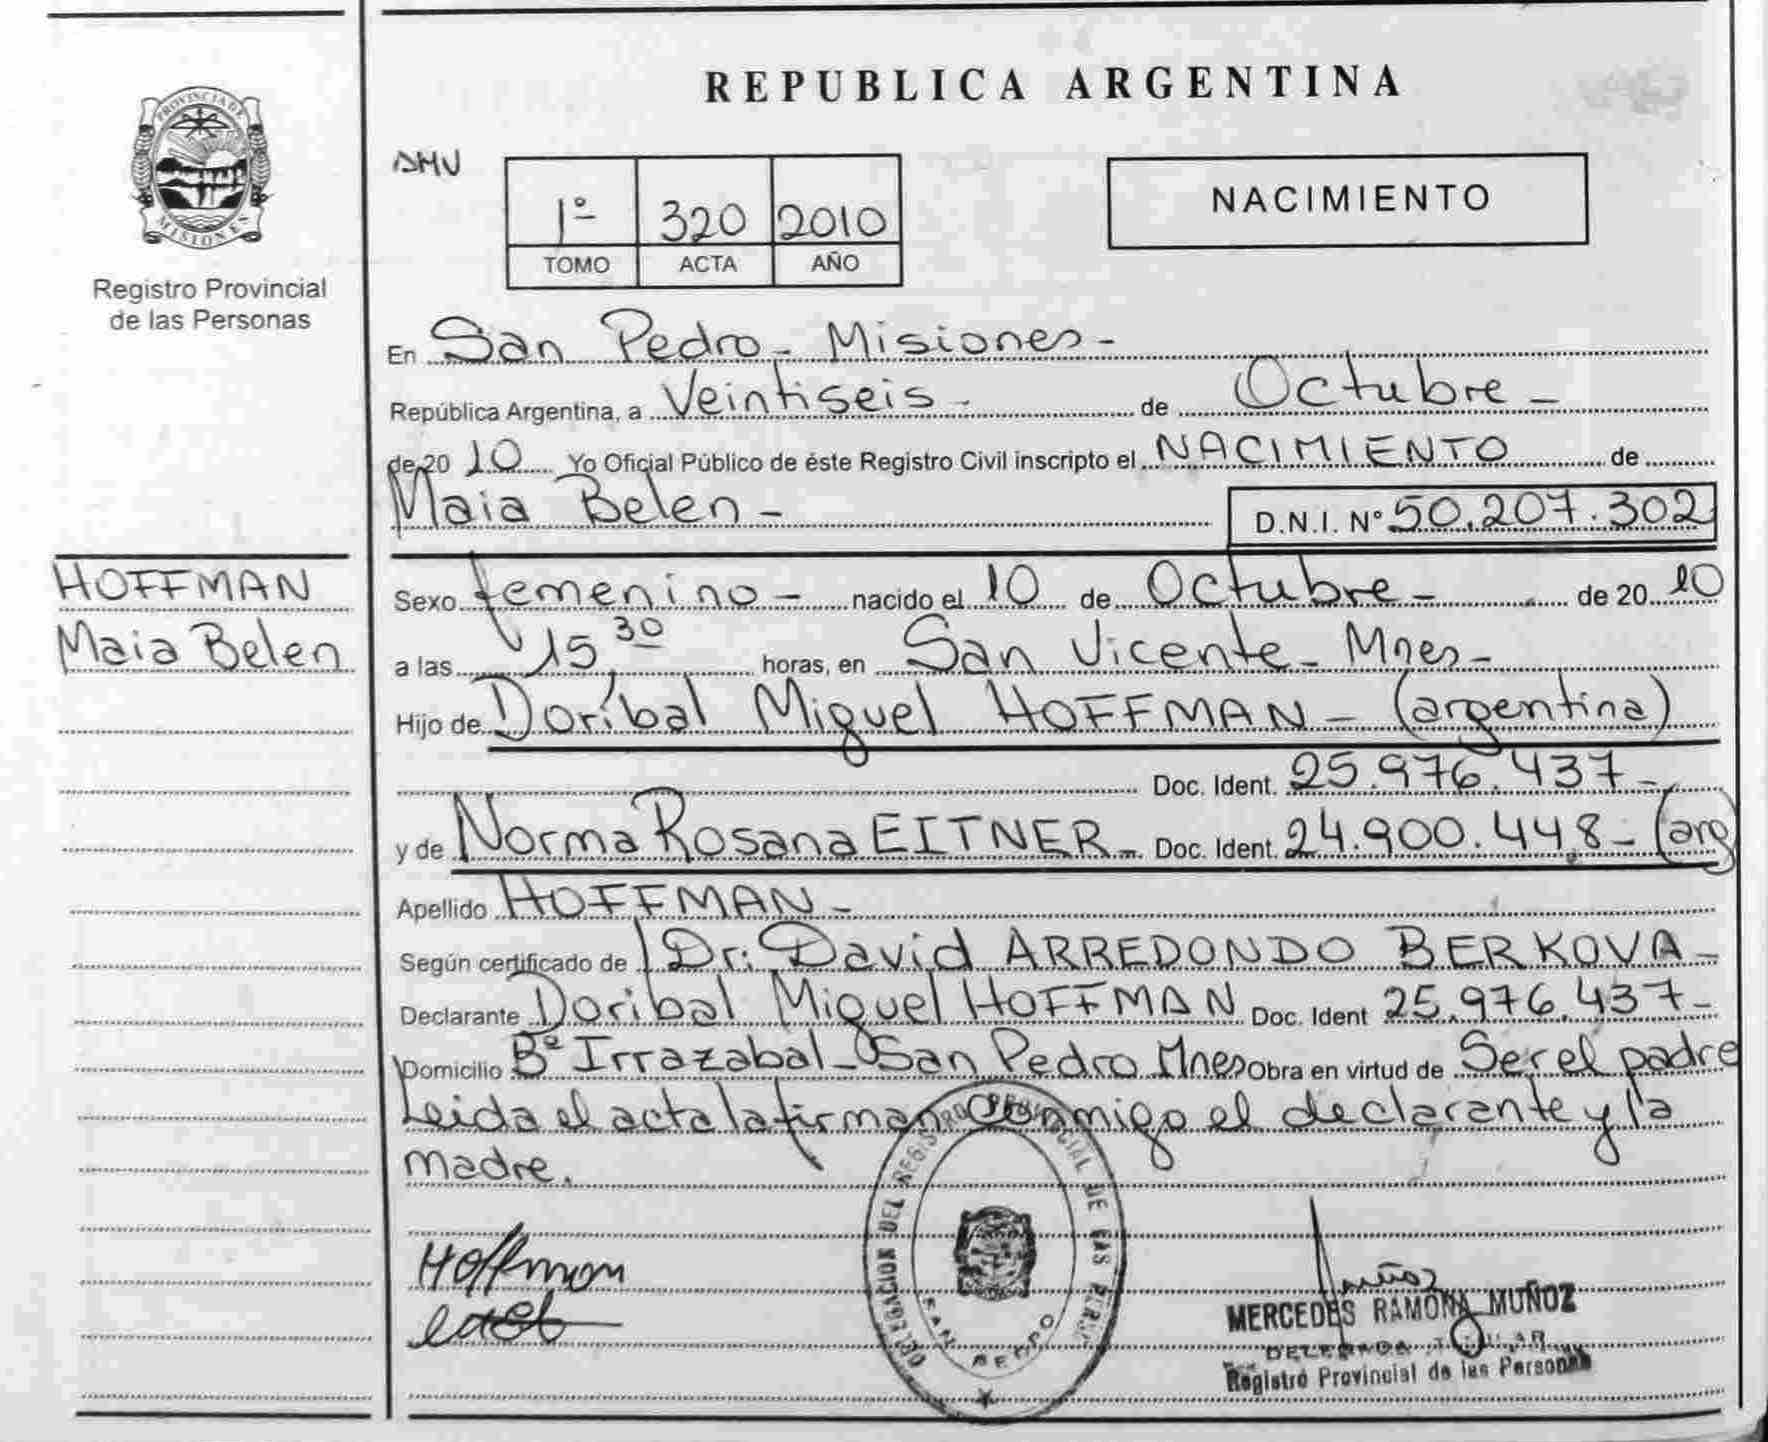 REPUBLICA ARGENTINA
PROVINCIA DE
MISIONES
Registro Provincial
de las Personas
1º 320 2010
TOMO ACTA AÑO
NACIMIENTO
En San Pedro - Misiones -
República Argentina, a Veintiseis - de Octubre -
de 20 10 Yo Oficial Público de éste Registro Civil inscripto el NACIMIENTO de
Maia Belen - D.N.I. Nº 50.207.302
HOFFMAN
Maia Belen
Sexo femenino - nacido el 10 de Octubre - de 20 10
a las 15,30 horas, en San Vicente - Mnes -
Hijo de Doribal Miguel HOFFMAN - (argentina)
Doc. Ident. 25.976.437 -
y de Norma Rosana EITNER - Doc. Ident. 24.900.448 - (arg
Apellido HOFFMAN -
Según certificado de Dr: David ARREDONDO BERKOVA -
Declarante Doribal Miguel HOFFMAN Doc. Ident 25.976.437 -
Domicilio Bº Irrazabal - San Pedro Mnes Obra en virtud de Ser el padre
Leida el acta la firman conmigo el declarante y la
madre.
Hoffman
DELEGACION DEL REGISTRO PROVINCIAL DE LAS PERS
SAN PEDRO
Muñoz
MERCEDES RAMONA MUÑOZ
DELEGADA TITULAR
Registro Provincial de las Personas